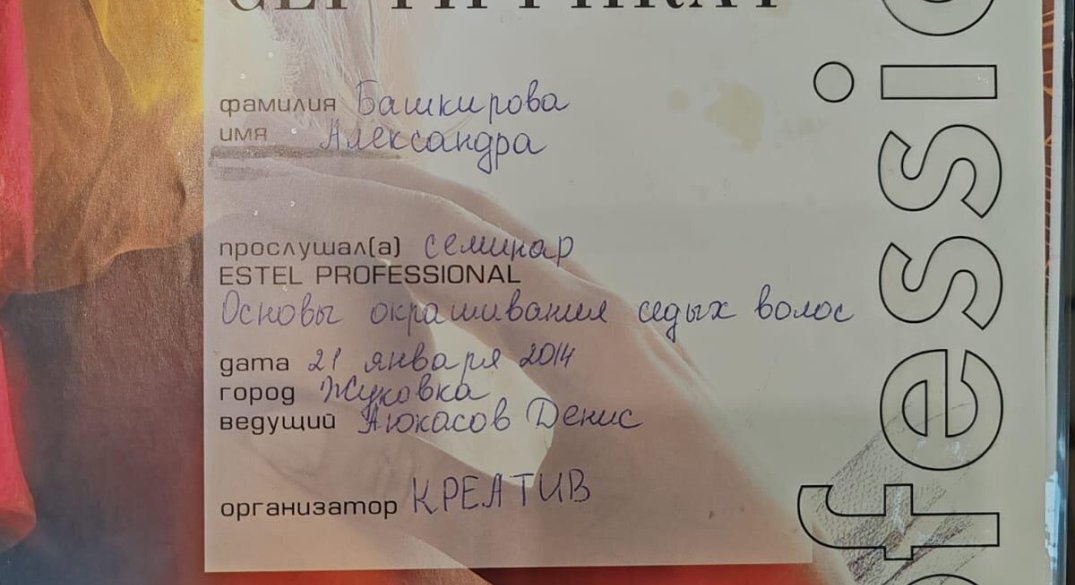 СЕРТИФИКАТ
фамилия Башкирова
имя Александра
прослушал(а) семинар
ESTEL PROFESSIONAL
Основы окрашивания седых волос
дата 21 января 2014
город Жуковка
ведущий Аюкасов Денис
организатор КРЕАТИВ
ofessio